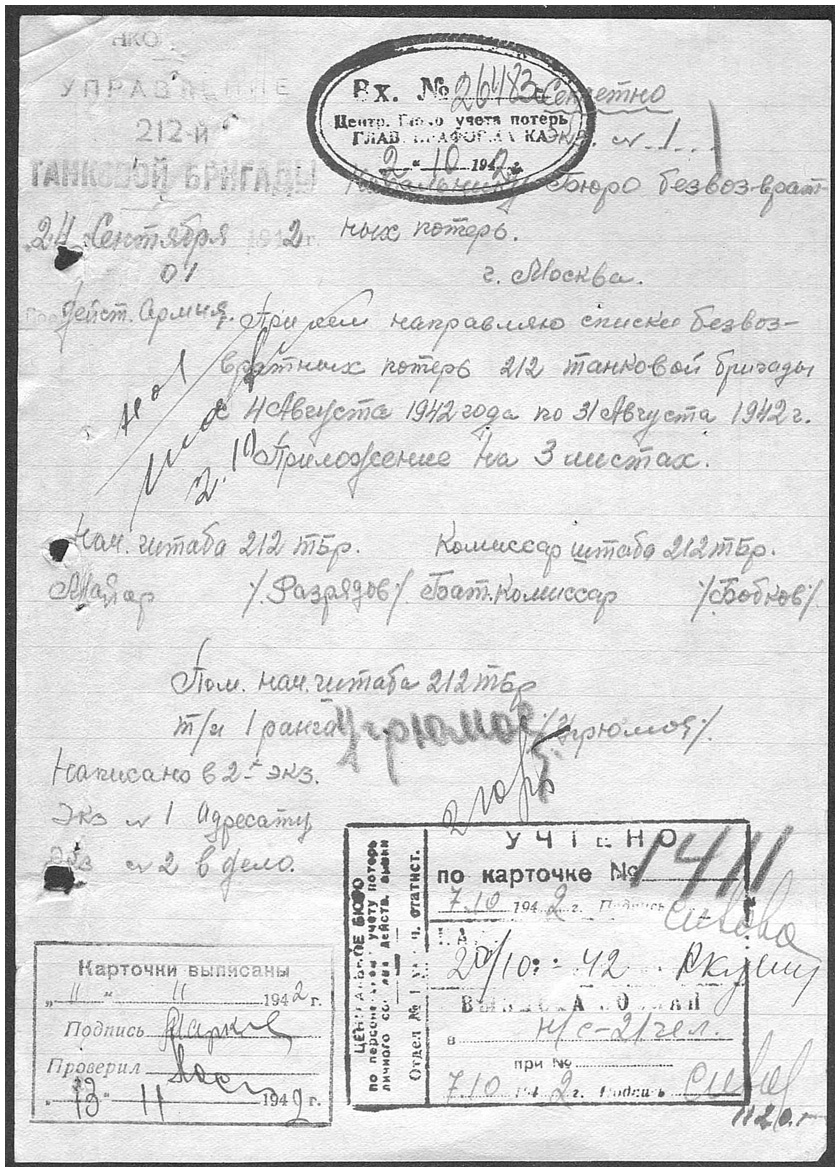 НКО
УПРАВЛЕНИЕ
212-й
ТАНКОВОЙ БРИГАДЫ
24 Сентября 1942 г.
Дейст. Армия.
Вх. № 26483с
Центр. Бюро учета потерь
2 " 10 1942 г.
Секретно
Экз. № 1
Начальнику Бюро безвоз-врат-
ных потерь.
г. Москва.
При сем направляю списки безвоз-
вратных потерь 212 танковой бригады
с 4 Августа 1942 года по 31 Августа 1942 г.
Приложение на 3 листах.
2.10
Нач. штаба 212 тбр. Комиссар штаба 212 тбр.
Майор /Разрядов/. Бат. Комиссар /Бобков/.
Пом. нач. штаба 212 тбр
т/и 1 ранга Угрюмов /Угрюмов/.
Написано в 2-х экз.
Экз № 1 Адресату
Экз № 2 в дело.
Карточки выписаны
„ 11 " 11 1942 г.
Подпись
Проверил
„ 13 " 11 1942 г.
ЦЕНТРАЛЬНОЕ БЮРО
по персональному учету потерь
личного состава действ. армии
Отдел № 1 ч. статист.
УЧТЕНО
по карточке № 1411
7.10 1942 г. Подпись
20/10 - 42
в н/с - 21 чел.
при №
7.10 1942 г. Подпись